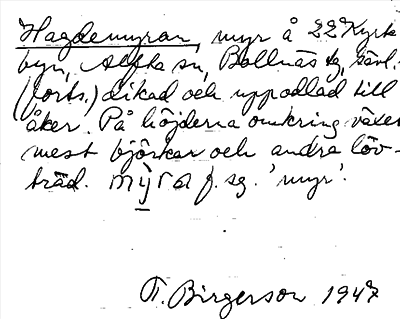 Hagdemyran, myr å 22 Kyrk
byn, Alfta sn, Bollnäs tg, Gävl.
(forts.) dikad och uppodlad till
åker. På höjderna omkring växer
mest björkar och andra löv-
träd. mỳra f. sg. 'myr'.
T. Birgerson 1947